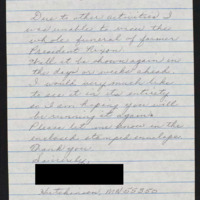 Due to other activities I
was unable to view the
whole funeral of former
President Nixon.
Will it be shown again in
the days or weeks ahead.
I would very much like
to see it in its entirety
so I am hoping you will
be running it again.
Please let me know in the
enclosed stamped envelope.
Thank you.
Sincerely,
Hutchinson, MN 55350